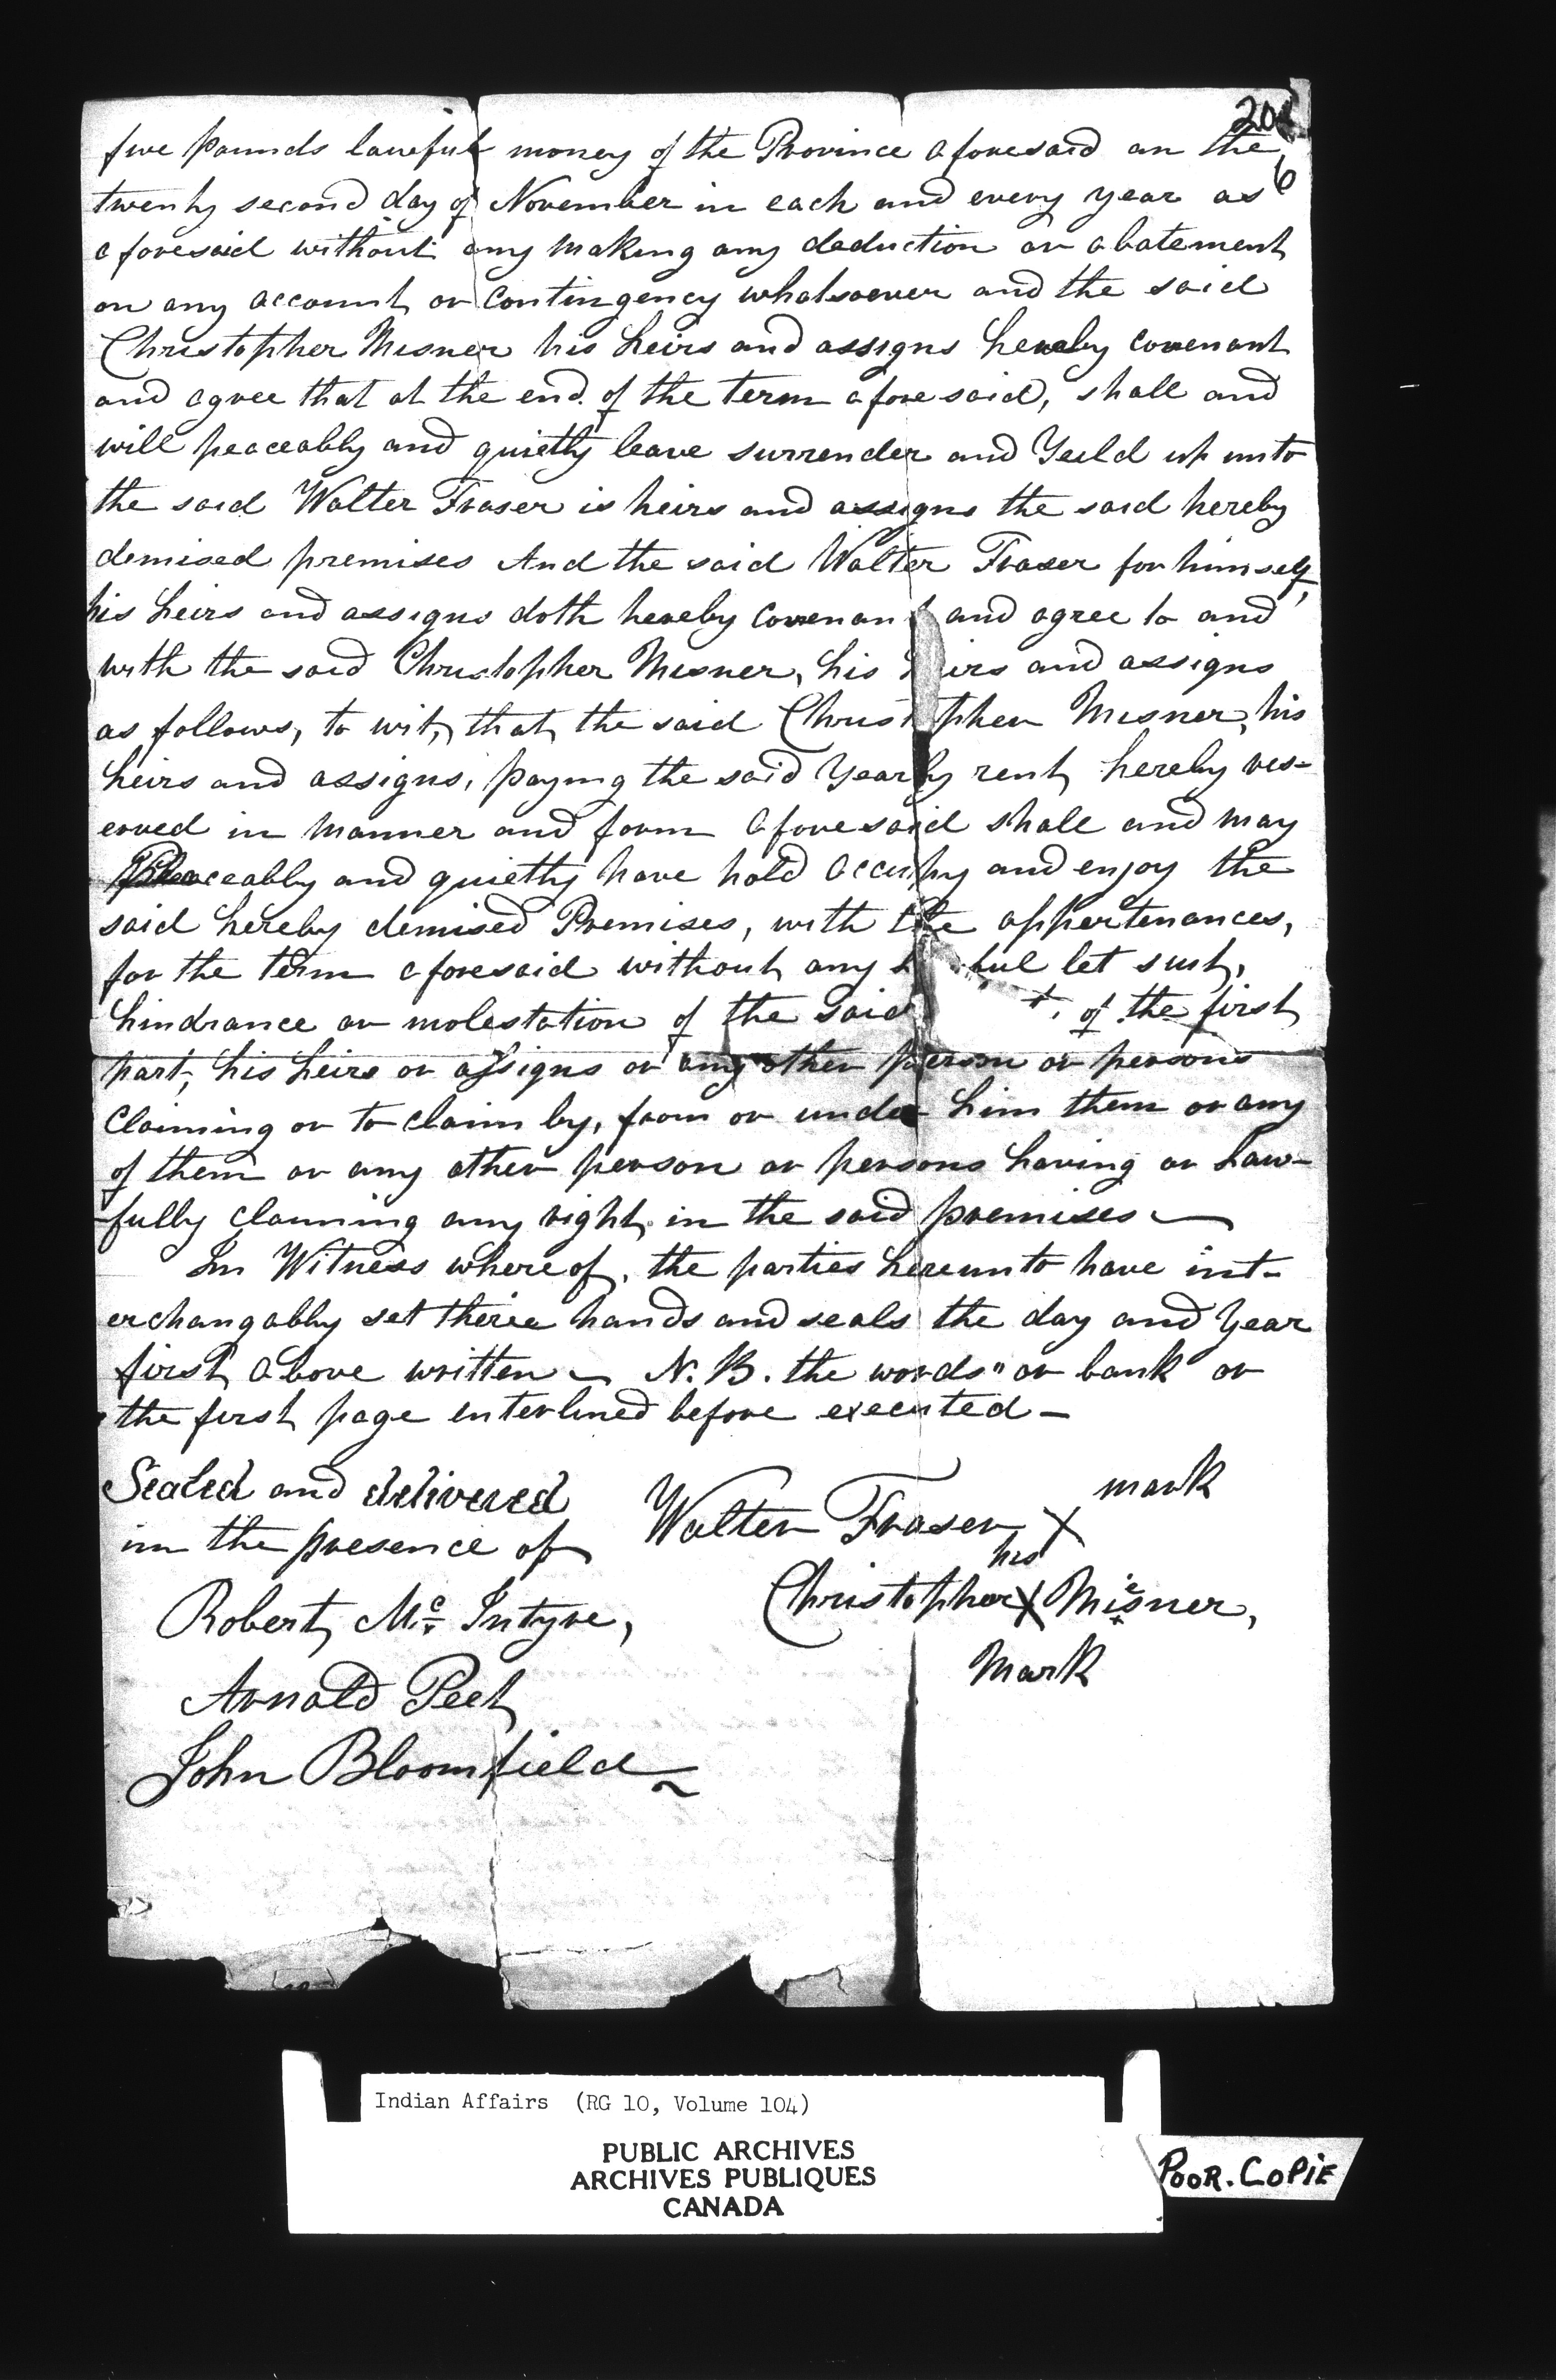 five pounds lawful money of the Province aforesaid on the
6
twenty second day of November in each and every year as
aforesaid without any making any deduction or abatement
on any account or contingency whatsoever and the said
Christopher Misner his heirs and assigns hereby covenant
and agree that at the end of the term aforesaid, shall and
will peaceably and quietly leave surrender and Yeild up unto
the said Walter Fraser is heirs and assigns the said hereby
demised premises And the said Walter Fraser for himself,
his heirs and assigns doth hereby covenant and agree to and
with the said Christopher Misner, his irs and assigns
as follows, to wit, that the said Christ pher Misner, his
heirs and assigns, paying the said Yearly rent hereby res-
erved in manner and form aforesaid shall and may
Peaceably and quietly have hold occupy and enjoy the
said hereby demised Premises, with the appertenances,
for the term aforesaid without any ful let suit,
hindrance or molestation of the said of the first
part, his heirs or assigns or any other person or persons
Claiming or to claim by, from or under him them or any
of them or any other person or persons having or Law-
fully claiming any right in the said premises
In Witness whereof, the parties hereunto have int-
erchangably set theire hands and seals the day and Year
first above written N.B. the words " or bank or
the first page enterlined before executed -
Sealed and delivered
in the presence of
mark
Walter Fraser X
his
Christopher X Misner,
Mark
Robert Mc Intyre,
Arnold Peet
John Bloomfield
Indian Affairs (RG 10, Volume 104)
PUBLIC ARCHIVES
ARCHIVES PUBLIQUES
CANADA
POOR. COPIE